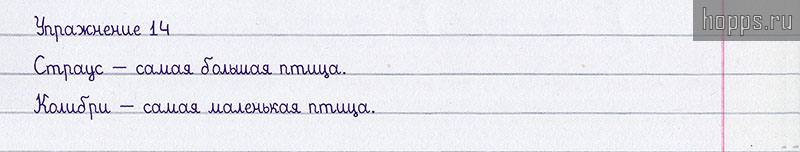 hopps.ru
Упражнение 14
Страус – самая большая птица.
Колибри – самая маленькая птица.